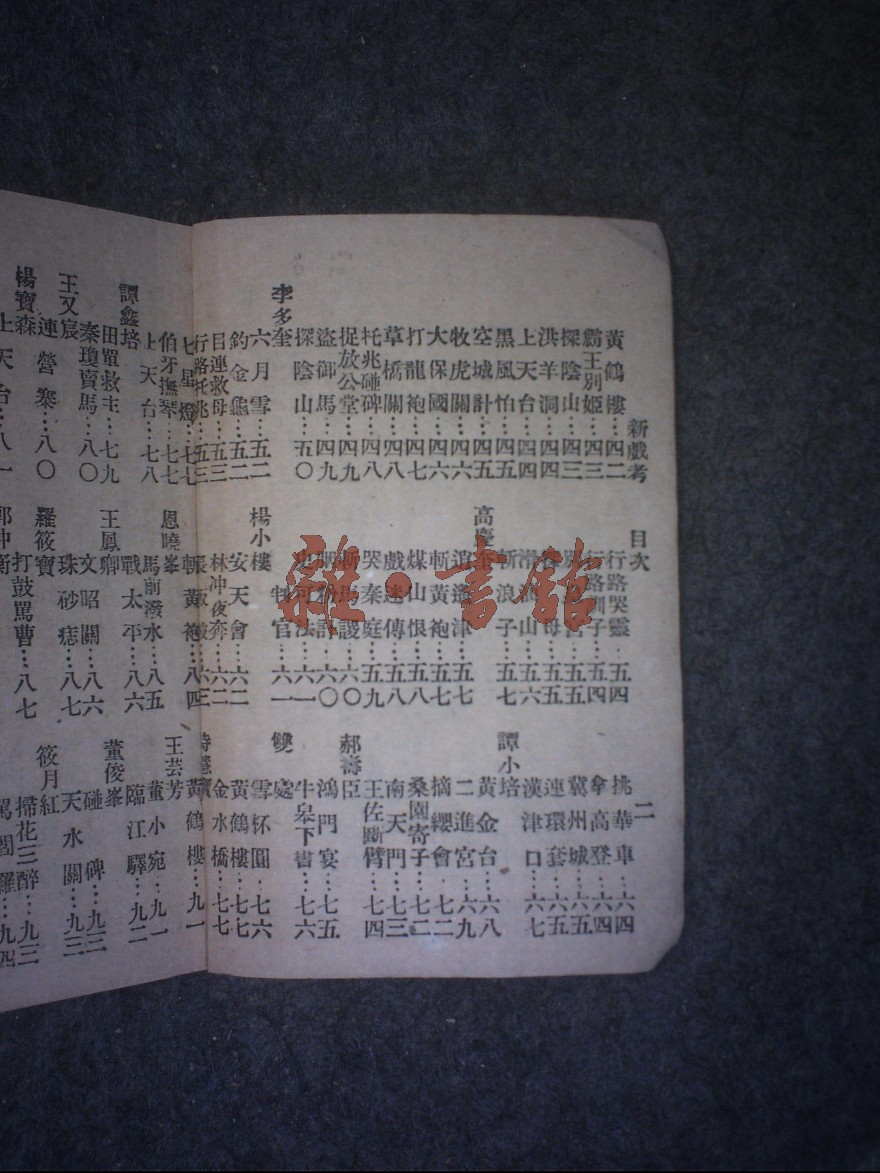 新戲考 目次 二
黃鶴樓⋯四二
霸王別姬⋯四三
探陰山⋯四三
洪羊洞⋯四四
上天台⋯四四
黑風怕⋯四五
空城計⋯四五
牧虎關⋯四六
大保國⋯四六
打龍袍⋯四七
草橋關⋯四八
托兆碰碑⋯四八
捉放公堂⋯四九
盜御馬⋯四九
探陰山⋯五〇
李多奎
六月雪⋯五二
釣金龜⋯五二
目連救母⋯五三
行路托兆⋯五三
行路哭靈⋯五四
行路訓子⋯五四
⋯五五
母⋯五五
滑山⋯五六
斬浪子⋯五七
高慶奎
逍遙津⋯五七
斬黃袍⋯五七
煤山恨⋯五八
戲迷傳⋯五八
哭秦庭⋯五九
斬馬謖⋯六〇
胭粉計⋯六〇
史可法⋯六一
判官⋯六一
楊小樓
安天會⋯六二
林冲夜奔⋯六二
長坂坡⋯六三
挑華車⋯六四
拿高登⋯六四
冀州城⋯六五
連環套⋯六五
漢津口⋯六七
譚小培
黃金台⋯六八
二進宮⋯六九
摘纓會⋯七二
桑園寄子⋯七二
南天門⋯七三
王佐斷臂⋯七四
郝壽臣
鴻門宴⋯七五
牛皋下書⋯七六
雙處
雪杯圓⋯七六
黃鶴樓⋯七七
金水橋⋯七七
七星燈⋯七七
伯牙撫琴⋯七七
上天台⋯七八
譚鑫培
田單救主⋯七九
秦瓊賣馬⋯八〇
王又宸
連營寨⋯八〇
楊寶森
上天台⋯八一
斬黃袍⋯八四
恩曉峯
馬前潑水⋯八五
戰太平⋯八六
王鳳卿
文昭關⋯八六
珠砂痣⋯八七
羅筱寶
打鼓罵曹⋯八七
郭仲衡
時慧寶
黃鶴樓⋯九一
王芸芳
董小宛⋯九一
臨江驛⋯九二
董俊峯
碰碑⋯九三
天水關⋯九三
筱月紅
掃花三醉⋯九三
罵閻羅⋯九四
雜·書館